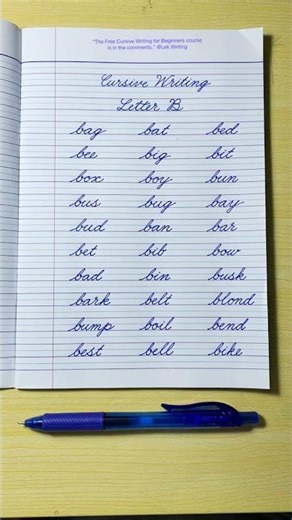 "The Free Cursive Writing for Beginners course
is in the comments." @Lek Writing
Cursive Writing
Letter B
bag bat bed
bee big bit
box boy bun
bus bug bay
bud ban bar
bet bib bow
bad bin busk
bark belt blond
bump boil bend
best bell bike